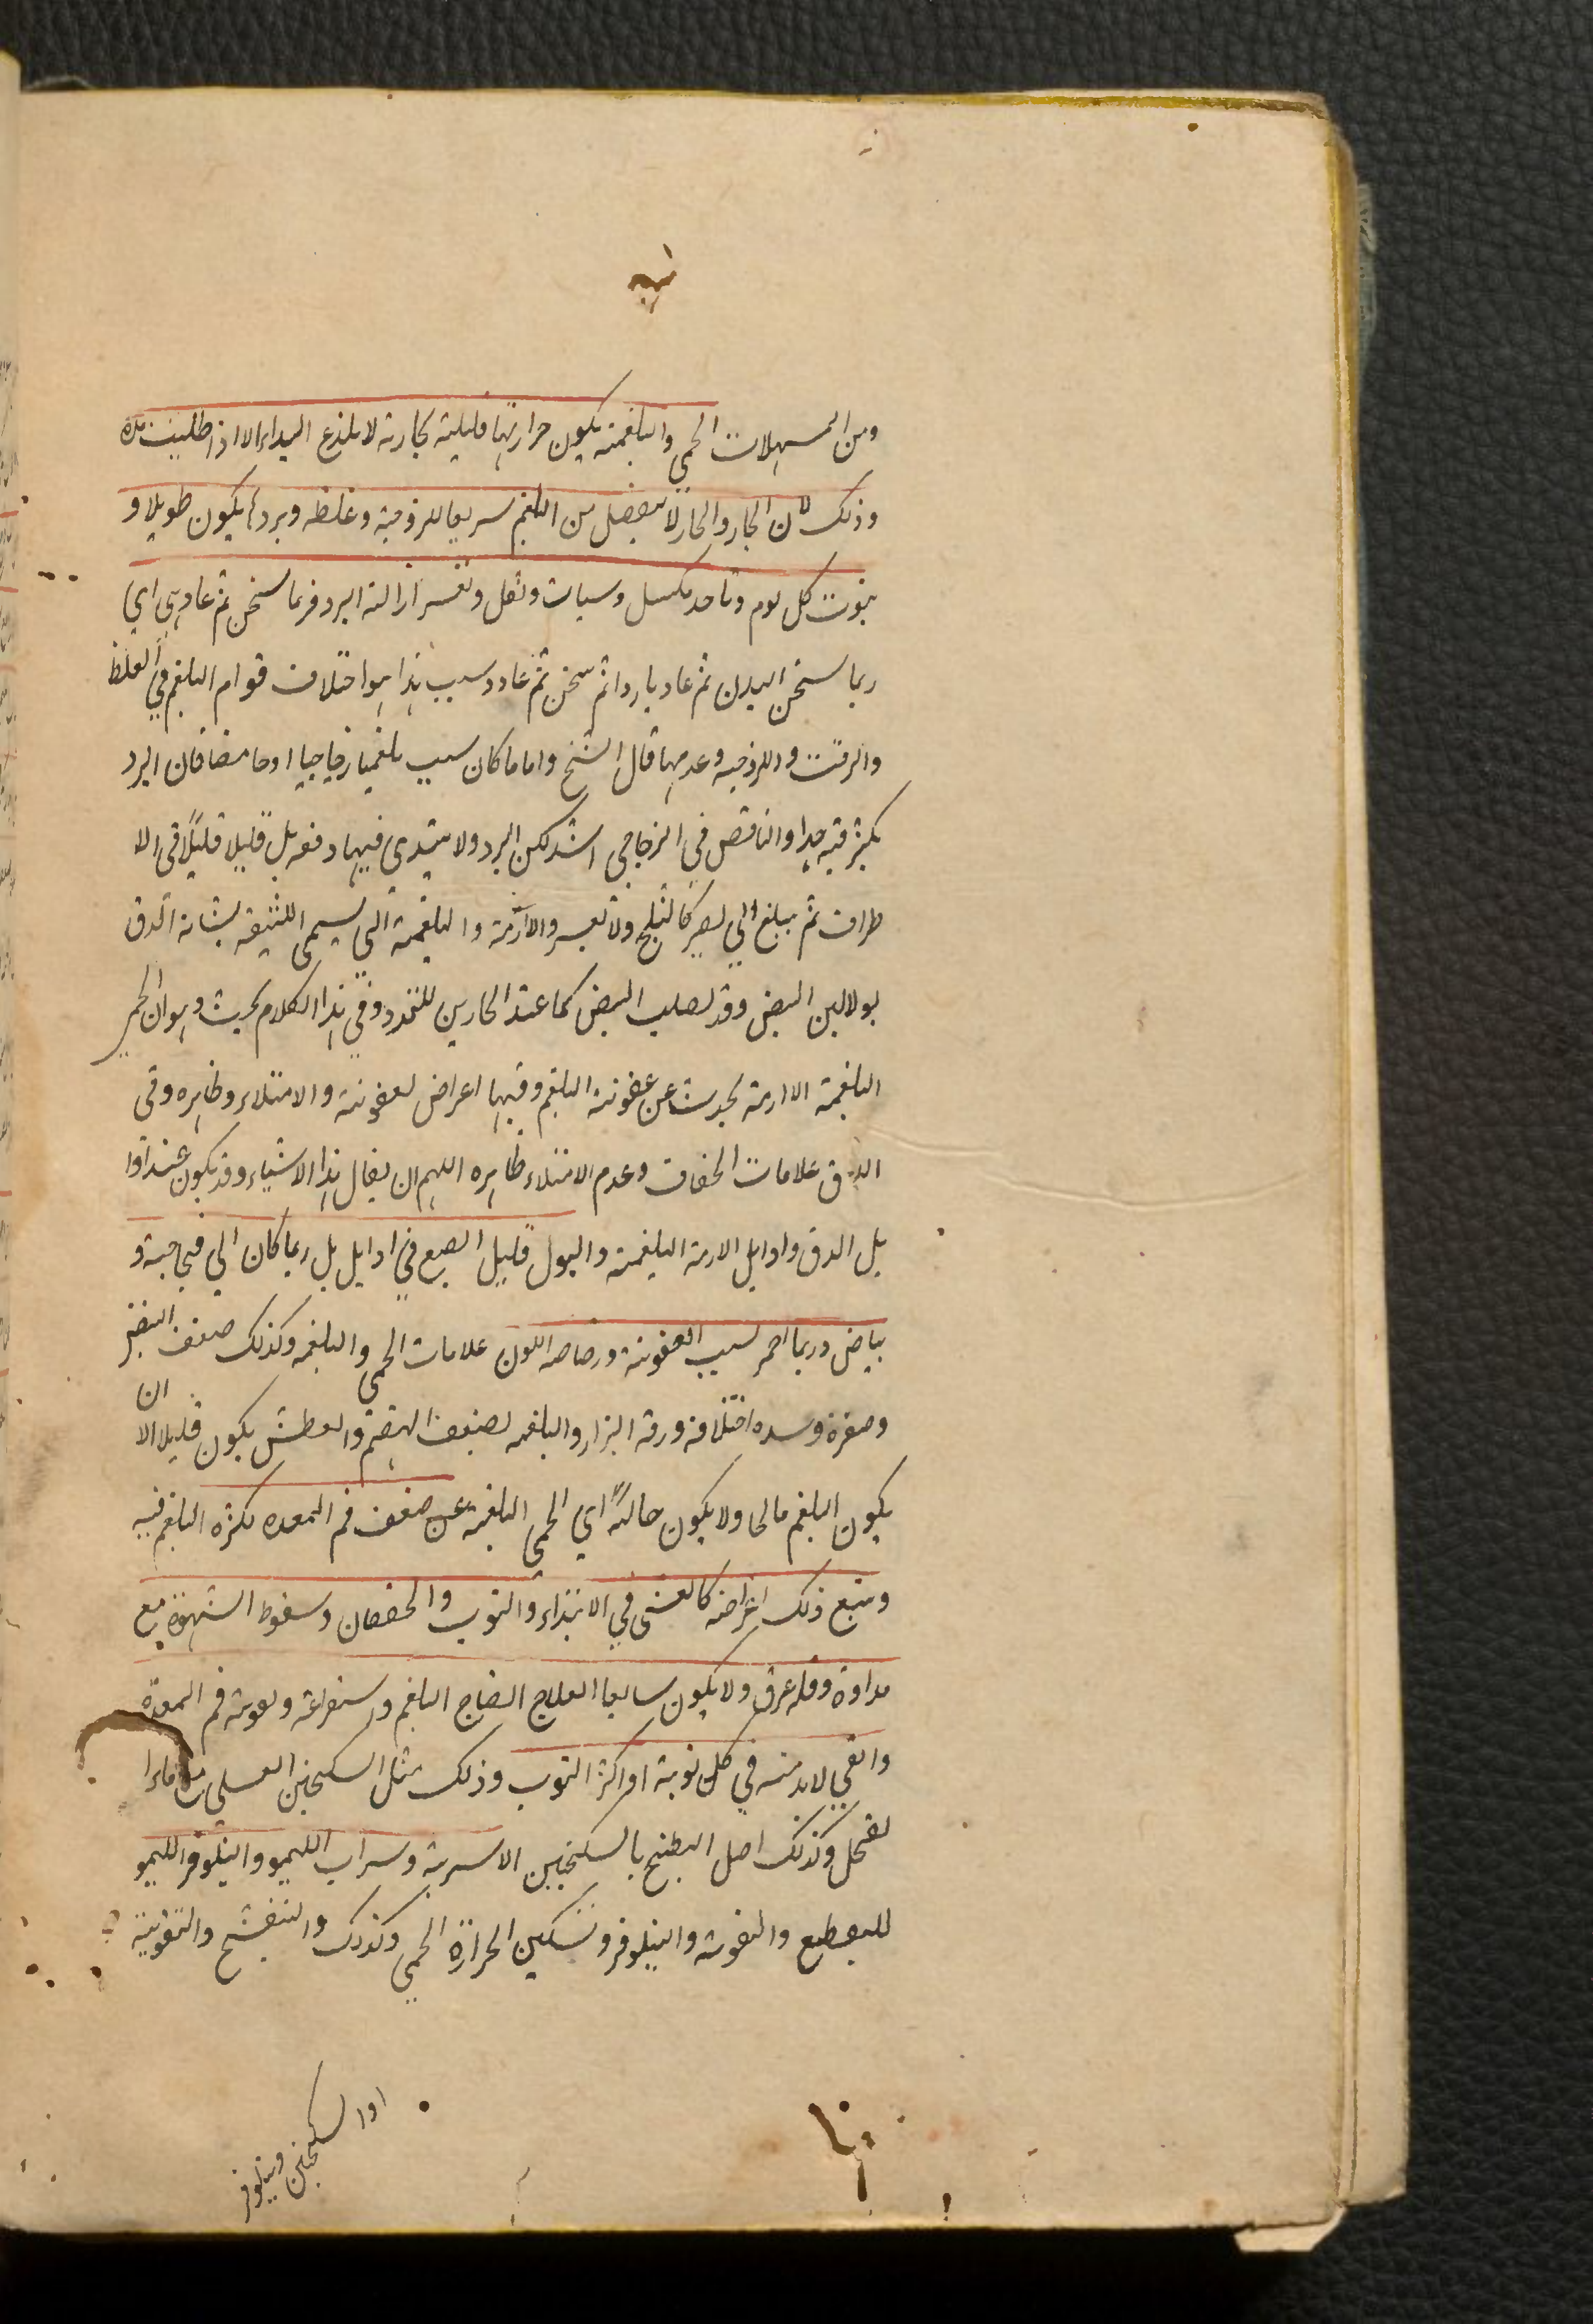 ومن المسهلات الحمي والبلغمية يكون حرارتها قليلية بخارية لا يلذع اليد الا اذا طليت مدة
وذلك لان البخار والحار لا ينفصل من البلغم سريعا للزوجية وغلظه وبردها يكون طويلا و
ينوب كل يوم وتاخد بكسل وسبات وثقل وتعسر ازالة البرد فربما سخن ثم عاد هي اي
ربما سخن البدن ثم عاد باردا ثم سخن ثم عاد وسبب هذا هو اختلاف قوام البلغم في الغلظ
والرقت واللزوجيه وعدمها قال الشيخ واما ما كان سبب بلغميا زجاجيا او حامضا فان البرد
يكثر فيه جدا والنافض في الزجاجي اشد لكن البرد ولا يبتدي فيها دفعه بل قليلا قليلا في الا
طراف ثم يبلغ الي يصير كالثلج ولا يعسر والازمة والبلغمية التي يسمي اللثيقه يشابه الدق
بولا لين النبض وقد يصلب النبض كما عند الحارين للتمدد وفي هذا الكلام بحث وهو ان الحمي
البلغمية الازمة يحدث عن عفونة البلغم وفيها اعراض لعفونة والامتلاء وظاهره وفي
الدق علامات الخفاف وعدم الامتلاء ظاهره اللهم ان يقال هذا الاشياء وقد يكون عند اوا
يل الدق واوايل الازمة البلغمية والبول قليل الصبغ في اوايل بل ربما كان الي فجاجية و
بياض وربما احمر لسبب العفونة ورصاصه اللون علامات الحمي والبلغمه وكذلك ضعف النبض
وصغرة وسده اختلافه ورقة البزار والبلغمه لضعف الهضم والعطش يكون قليلا الا ان
يكون البلغم مالحا ولا يكون خالية اي الحمي البلغمية عن ضعف فم المعده لكثره البلغم فيه
ويتبع ذلك اعراضه كالغشي في الابتداء والنوب والخفقان وسقوط الشهوة مع
مداوة وقله عرق ولا يكون سابعا العلاج انضاج البلغم واستفراغه وتقوية فم المعدة
والقي لابد منه في كل نوبة او اكثر النوب وذلك مثل السكنجبن العسلي مع ماء ا
لفجل وكذلك اصل البطيخ بالسكنجبين الاشربة وشراب الليمو والنيلوفر الليمو
للتقطيع والتقوية والنيلوفر وتسكين الحرارة الحمي وكذلك والبنفشج والتقوية
اوا لسكنجبن ونيلوفر